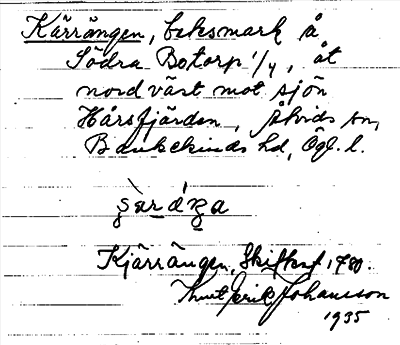 Kärrängen, beksmark å
Södra Botorp 1/4, åt
nordväst mot sjön
Hårsfjärden, Åtvids sn,
Bankekinds hd, Ögl. l.
Kjärrängen, Skifteskt 1780.
Knut Erik Johansson
1935